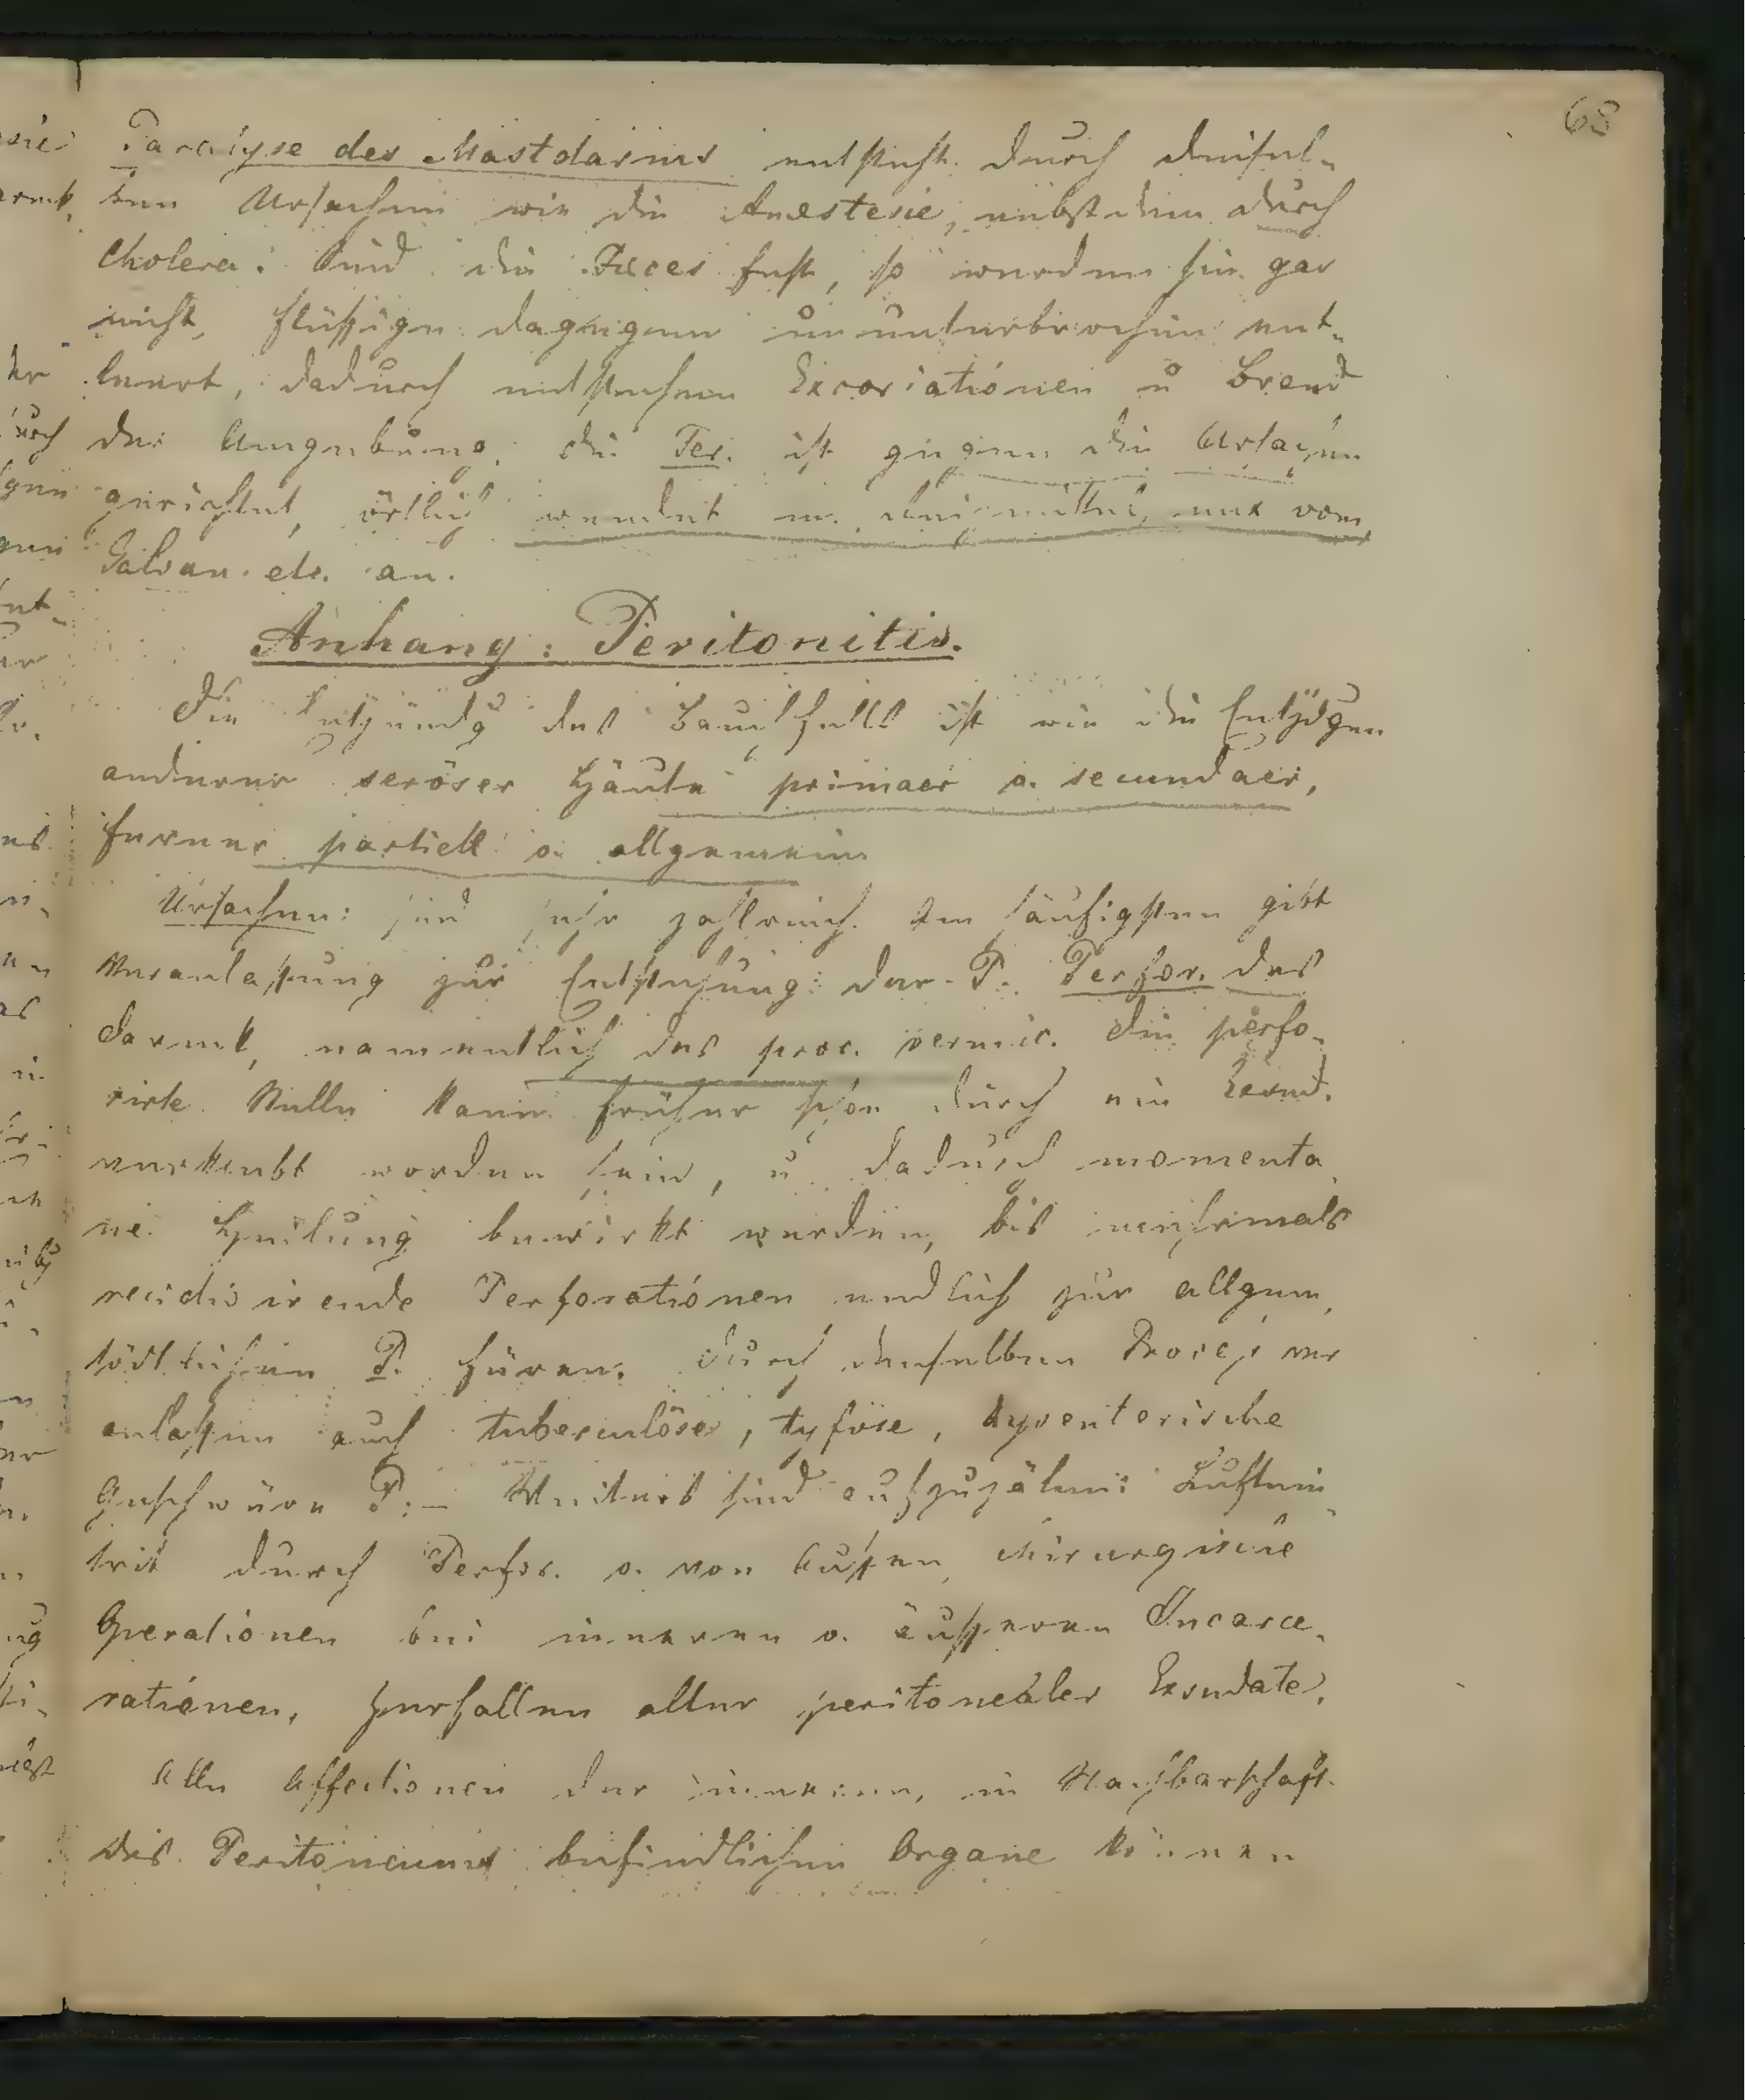 68
Paralyse des Mastdarms entsteht durch dieisel-
ben Ursachen wie die Anæstesie, nebstdem durch
Cholera. Sind die Fæces fest, so werden sie gar
nicht, flüssige dagegen ununterbrochen ent-
leert, dadurch entstehen Excoriationen u Brand
der Umgebung. die Ter. ist gegen die Ursachen
gerichtet, örtlich wendet m. nux vom
Galvan. etc. an.
Anhang: Peritonitis.
Die Entzündg des Bauchfells ist wie die Entzdgen
anderer seröser Häute primaer o. secundaer,
ferner partiell o. allgemein
Ursachen: sind sehr zahlreich. Am häufigsten gibt
Veranlassung zur Entstehung der P. Perfor. des
Darmes, namentlich des proc. vermic. die perfo-
rirte Stelle kann früher schon durch ein Exsud.
verklebt worden sein, u dadurch momenta
ne Heilung bewirkt werden, bis mehrmals
recidivirende Perforationen endlich zur allgem,
tödtlichen P. füren. Durch denselben Process ver
anlassen auch tuberculöse, tyföse, dysentorische
Geschwüre P. – Weiters sind aufzuzälen: Luftein-
trit durch Perfor. o. von Aussen, chirurgische
Operationen bei inneren o. äusseren Incarce-
rationen, Zerfallen alter peritonealer Exsudate.
Alle Affectionen der inneren, in Nachbarschaft
des Peritoneums befindlichen Organe können